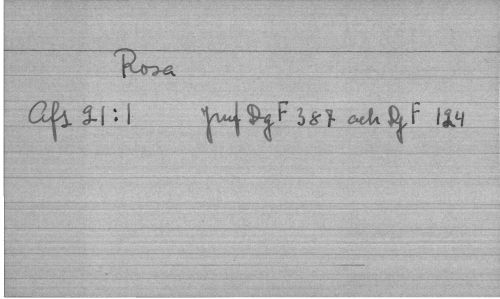 Rosa
Afz 21:1 Jmf DgF 387 och DgF 124